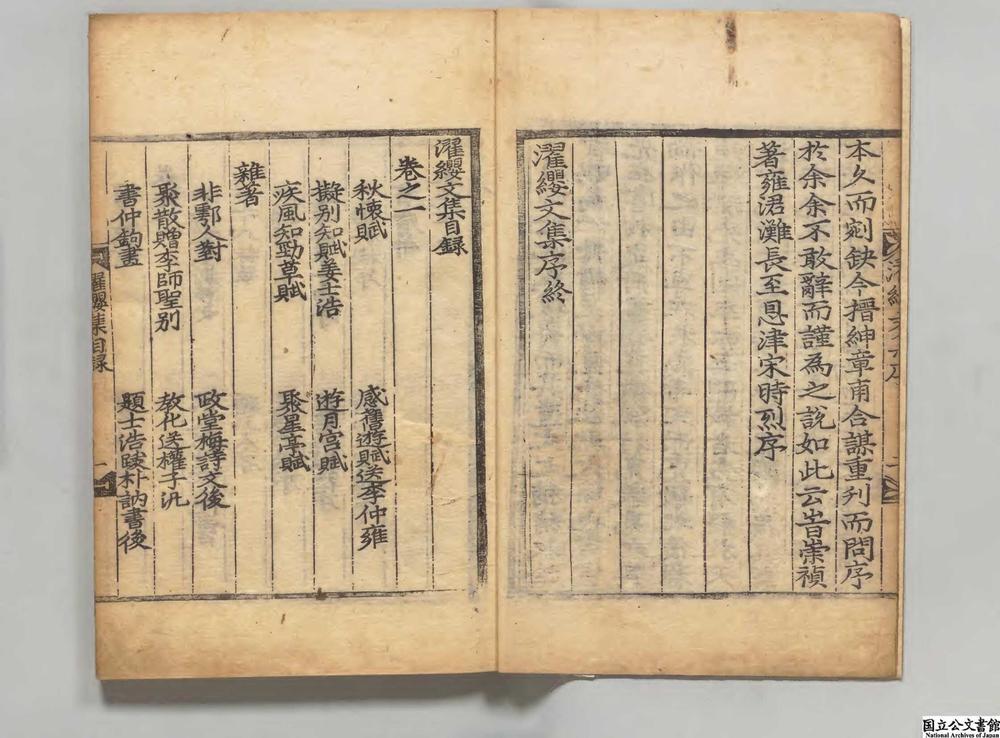 本久而刓缺今搢紳章甫合謀重刋而問序
於余余不敢辭而謹爲之説如此云旹崇禎
著雍涒灘長至恩津宋時烈序
濯纓文集序終
濯纓文集目録
卷之一
秋懷賦 感舊遊賦送李仲雍
擬別知賦姜士浩 遊月宮賦
疾風知勁草賦 聚星亭賦
雜著
非鄭人對 政堂梅詩文後
聚散贈李師聖别 教化送權子汎
書仲鈞畫 題士浩跋朴訥書後
濯纓集目録 一
国立公文書館
National Archives of Japan